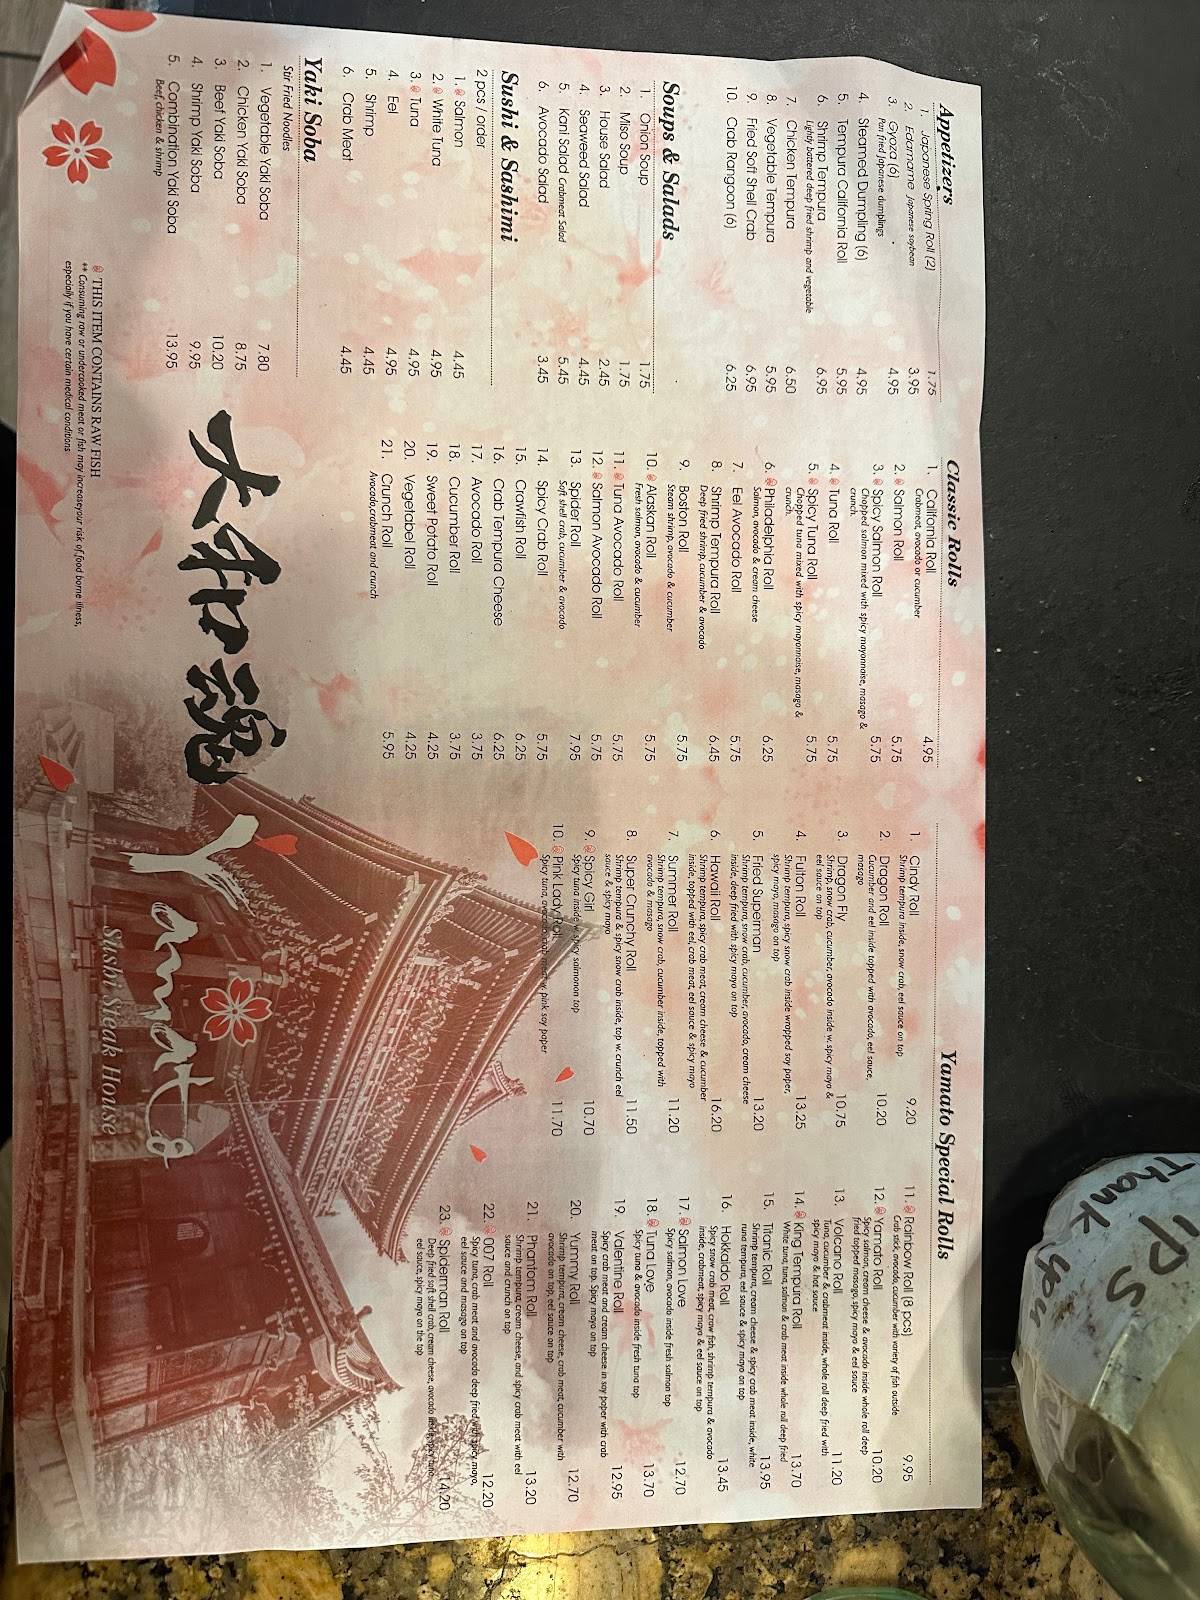 Appetizers
1. Japanese Spring Roll (2) 1.75
2. Edamame Japanese soybean 3.95
3. Gyoza (6) 4.95
Pan fried Japanese dumplings
4. Steamed Dumpling (6) 4.95
5. Tempura California Roll 5.95
6. Shrimp Tempura 6.95
Lighly battered deep fried shrimp and vegetable
7. Chicken Tempura 6.50
8. Vegetable Tempura 5.95
9. Fried Soft Shell Crab 6.95
10. Crab Rangoon (6) 6.25
Soups & Salads
1. Onion Soup 1.75
2. Miso Soup 1.75
3. House Salad 2.45
4. Seaweed Salad 4.45
5. Kani Salad Crabmeat Salad 5.45
6. Avocado Salad 3.45
Sushi & Sashimi
2 pcs / order
1. Salmon 4.45
2. White Tuna 4.95
3. Tuna 4.95
4. Eel 4.95
5. Shrimp 4.45
6. Crab Meat 4.45
Yaki Soba
Stir Fried Noodles
1. Vegetable Yaki Soba 7.80
2. Chicken Yaki Soba 8.75
3. Beef Yaki Soba 10.20
4. Shrimp Yaki Soba 9.95
5. Combination Yaki Soba 13.95
Beef, chicken & shrimp
THIS ITEM CONTAINS RAW FISH
** Consuming raw or undercooked meat or fish may increaseyour risk of food borne illness,
especially if you have certain medical conditions
Classic Rolls
1. California Roll 4.95
Crabmeat, avocado or cucumber
2. Salmon Roll 5.75
3. Spicy Salmon Roll 5.75
Chopped salmon mixed with spicy mayonnaise, masago &
crunch.
4. Tuna Roll 5.75
5. Spicy Tuna Roll 5.75
Chopped tuna mixed with spicy mayonnaise, masago &
crunch.
6. Philadelphia Roll 6.25
Salmon, avocado & cream cheese
7. Eel Avocado Roll 5.75
8. Shrimp Tempura Roll 6.45
Deep fried shrimp, cucumber & avocado
9. Boston Roll 5.75
Steam shrimp, avocado & cucumber
10. Alaskan Roll 5.75
Fresh salmon, avocado & cucumber
11. Tuna Avocado Roll 5.75
12. Salmon Avocado Roll 5.75
13. Spider Roll 7.95
Soft shell crab, cucumber & avocado
14. Spicy Crab Roll 5.75
15. Crawfish Roll 6.25
16. Crab Tempura Cheese 6.25
17. Avocado Roll 3.75
18. Cucumber Roll 3.75
19. Sweet Potato Roll 4.25
20. Vegetabel Roll 4.25
21. Crunch Roll 5.95
Avocado,crabmeat and crunch
大和魂
Yamato
Sushi Steak House
Yamato Special Rolls
1. Cindy Roll 9.20
Shrimp tempura inside, snow crab, eel sauce on top
2. Dragon Roll 10.20
Cucumber and eel inside topped with avocado, eel sauce,
masago
3. Dragon Fly 10.75
Shrimp, snow crab, cucumber, avocado inside w. spicy mayo &
eel sauce on top
4. Fulton Roll 13.25
Shrimp tempura, spicy snow crab inside wrapped soy paper,
spicy mayo, masago on top
5. Fried Superman 13.20
Shrimp tempura, snow crab, cucumber, avocado, cream cheese
inside, deep fried with spicy mayo on top
6. Hawaii Roll 16.20
Shrimp tempura, spicy crab meat, cream cheese & cucumber
inside, topped with eel, crab meat, eel sauce & spicy mayo
7. Summer Roll 11.20
Shrimp tempura, snow crab, cucumber inside, topped with
avocado & masago
8. Super Crunchy Roll 11.50
Shrimp tempura & spicy snow crab inside, top w. crunch eel
sauce & spicy mayo
9. Spicy Girl 10.70
Spicy tuna inside w. spicy salmonon top
10. Pink Lady Roll 11.70
Spicy tuna, avocado, crab meat w. pink soy paper
11. Rainbow Roll (8 pcs) 9.95
Crab stick, avocado, cucumber with variety of fish outside
12. Yamato Roll 10.20
Spicy salmon, cream cheese & avocado inside whole roll deep
fried topped masago, spicy mayo & eel sauce
13. Volcano Roll 11.20
Tuna, cucumber & crabmeat inside, whole roll deep fried with
spicy mayo & hot sauce
14. King Tempura Roll 13.70
White tuna, tuna, salmon & crab meat inside whole roll deep fried
15. Titanic Roll 13.95
Shrimp tempura, cream cheese & spicy crab meat inside, white
tuna tempura, eel sauce & spicy mayo on top
16. Hokkaido Roll 13.45
Spicy snow crab meat, craw fish, shrimp tempura & avocado
inside, crabmeat, spicy mayo & eel sauce on top
17. Salmon Love 12.70
Spicy salmon, avocado inside fresh salmon top
18. Tuna Love 13.70
Spicy tuna & avocado inside fresh tuna top
19. Valentine Roll 12.95
Spicy crab meat and cream cheese in soy paper with crab
meat on top. Spicy mayo on top
20. Yummy Roll 12.70
Shrimp tempura, cream cheese, crab meat, cucumber with
avocado on top, eel sauce on top
21. Phantom Roll 13.20
Shrimp tempura, cream cheese, and spicy crab meat with eel
sauce and crunch on top
22. 007 Roll 12.20
Spicy tuna, crab meat and avocado deep fried with spicy mayo,
eel sauce and masago on top
23. Spiderman Roll 14.20
Deep fried soft shell crab, cream cheese, avocado inside spicy tuna
eel sauce, spicy mayo on the top
TIPS
Thank you